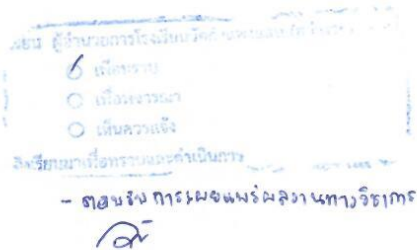 เรียน ผู้อำนวยการโรงเรียนวัด
เพื่อทราบ
เพื่อพิจารณา
เห็นควรแจ้ง
จึงเรียนมาเพื่อทราบและดำเนินการ
- ตอบรับการเผยแพร่ผลงานทางวิชาการ